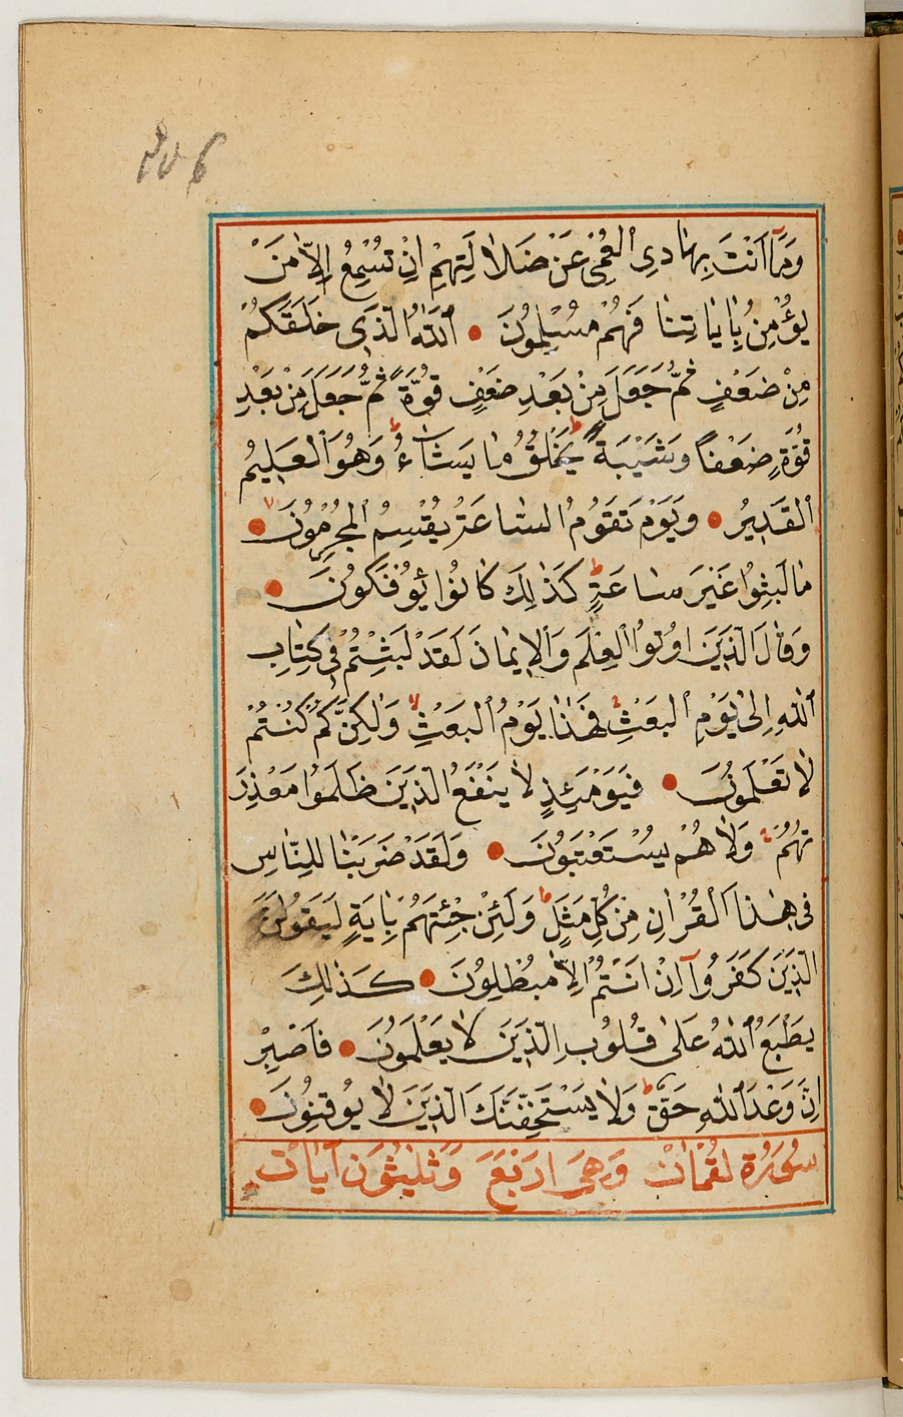 وَمَٓا اَنْتَ بِهَادِي الْعُمْيِ عَنْ ضَلَالَتِهِمْ اِنْ تُسْمِعُ اِلَّا مَنْ
يُؤْمِنُ بِاٰيَاتِنَا فَهُمْ مُسْلِمُونَ ● اَللّٰهُ الَّذِي خَلَقَكُمْ
مِنْ ضَعْفٍ ثُمَّ جَعَلَ مِنْ بَعْدِ ضَعْفٍ قُوَّةً ثُمَّ جَعَلَ مِنْ بَعْدِ
قُوَّةٍ ضَعْفًا وَشَيْبَةً ط يَخْلُقُ مَا يَشَاءُ ط وَهُوَ الْعَلِيمُ
الْقَدِيرُ ● وَيَوْمَ تَقُومُ السَّاعَةُ يُقْسِمُ الْمُجْرِمُونَ لا ●
مَا لَبِثُوا غَيْرَ سَاعَةٍ ط كَذٰلِكَ كَانُوا يُؤْفَكُونَ ●
وَقَالَ الَّذِينَ اُوتُوا الْعِلْمَ وَالْاِيمَانَ لَقَدْ لَبِثْتُمْ فِي كِتَابِ
اللّٰهِ اِلٰى يَوْمِ الْبَعْثِ فَهٰذَا يَوْمُ الْبَعْثِ لا وَلٰكِنَّكُمْ كُنْتُمْ
لَا تَعْلَمُونَ ● فَيَوْمَئِذٍ لَا يَنْفَعُ الَّذِينَ ظَلَمُوا مَعْذِرَ
تُهُمْ وَلَا هُمْ يُسْتَعْتَبُونَ ● وَلَقَدْ ضَرَبْنَا لِلنَّاسِ
فِي هٰذَا الْقُرْاٰنِ مِنْ كُلِّ مَثَلٍ ط وَلَئِنْ جِئْتَهُمْ بِاٰيَةٍ لَيَقُولَنَّ
الَّذِينَ كَفَرُوٓا اِنْ اَنْتُمْ اِلَّا مُبْطِلُونَ ● كَذٰلِكَ
يَطْبَعُ اللّٰهُ عَلٰى قُلُوبِ الَّذِينَ لَا يَعْلَمُونَ ● فَاصْبِرْ
اِنَّ وَعْدَ اللّٰهِ حَقٌّ ط وَلَا يَسْتَخِفَّنَّكَ الَّذِينَ لَا يُوقِنُونَ ●
سُورَةُ لُقْمَانَ وَهِيَ اَرْبَعَ وَثَلٰثُونَ اٰيَاتٍ